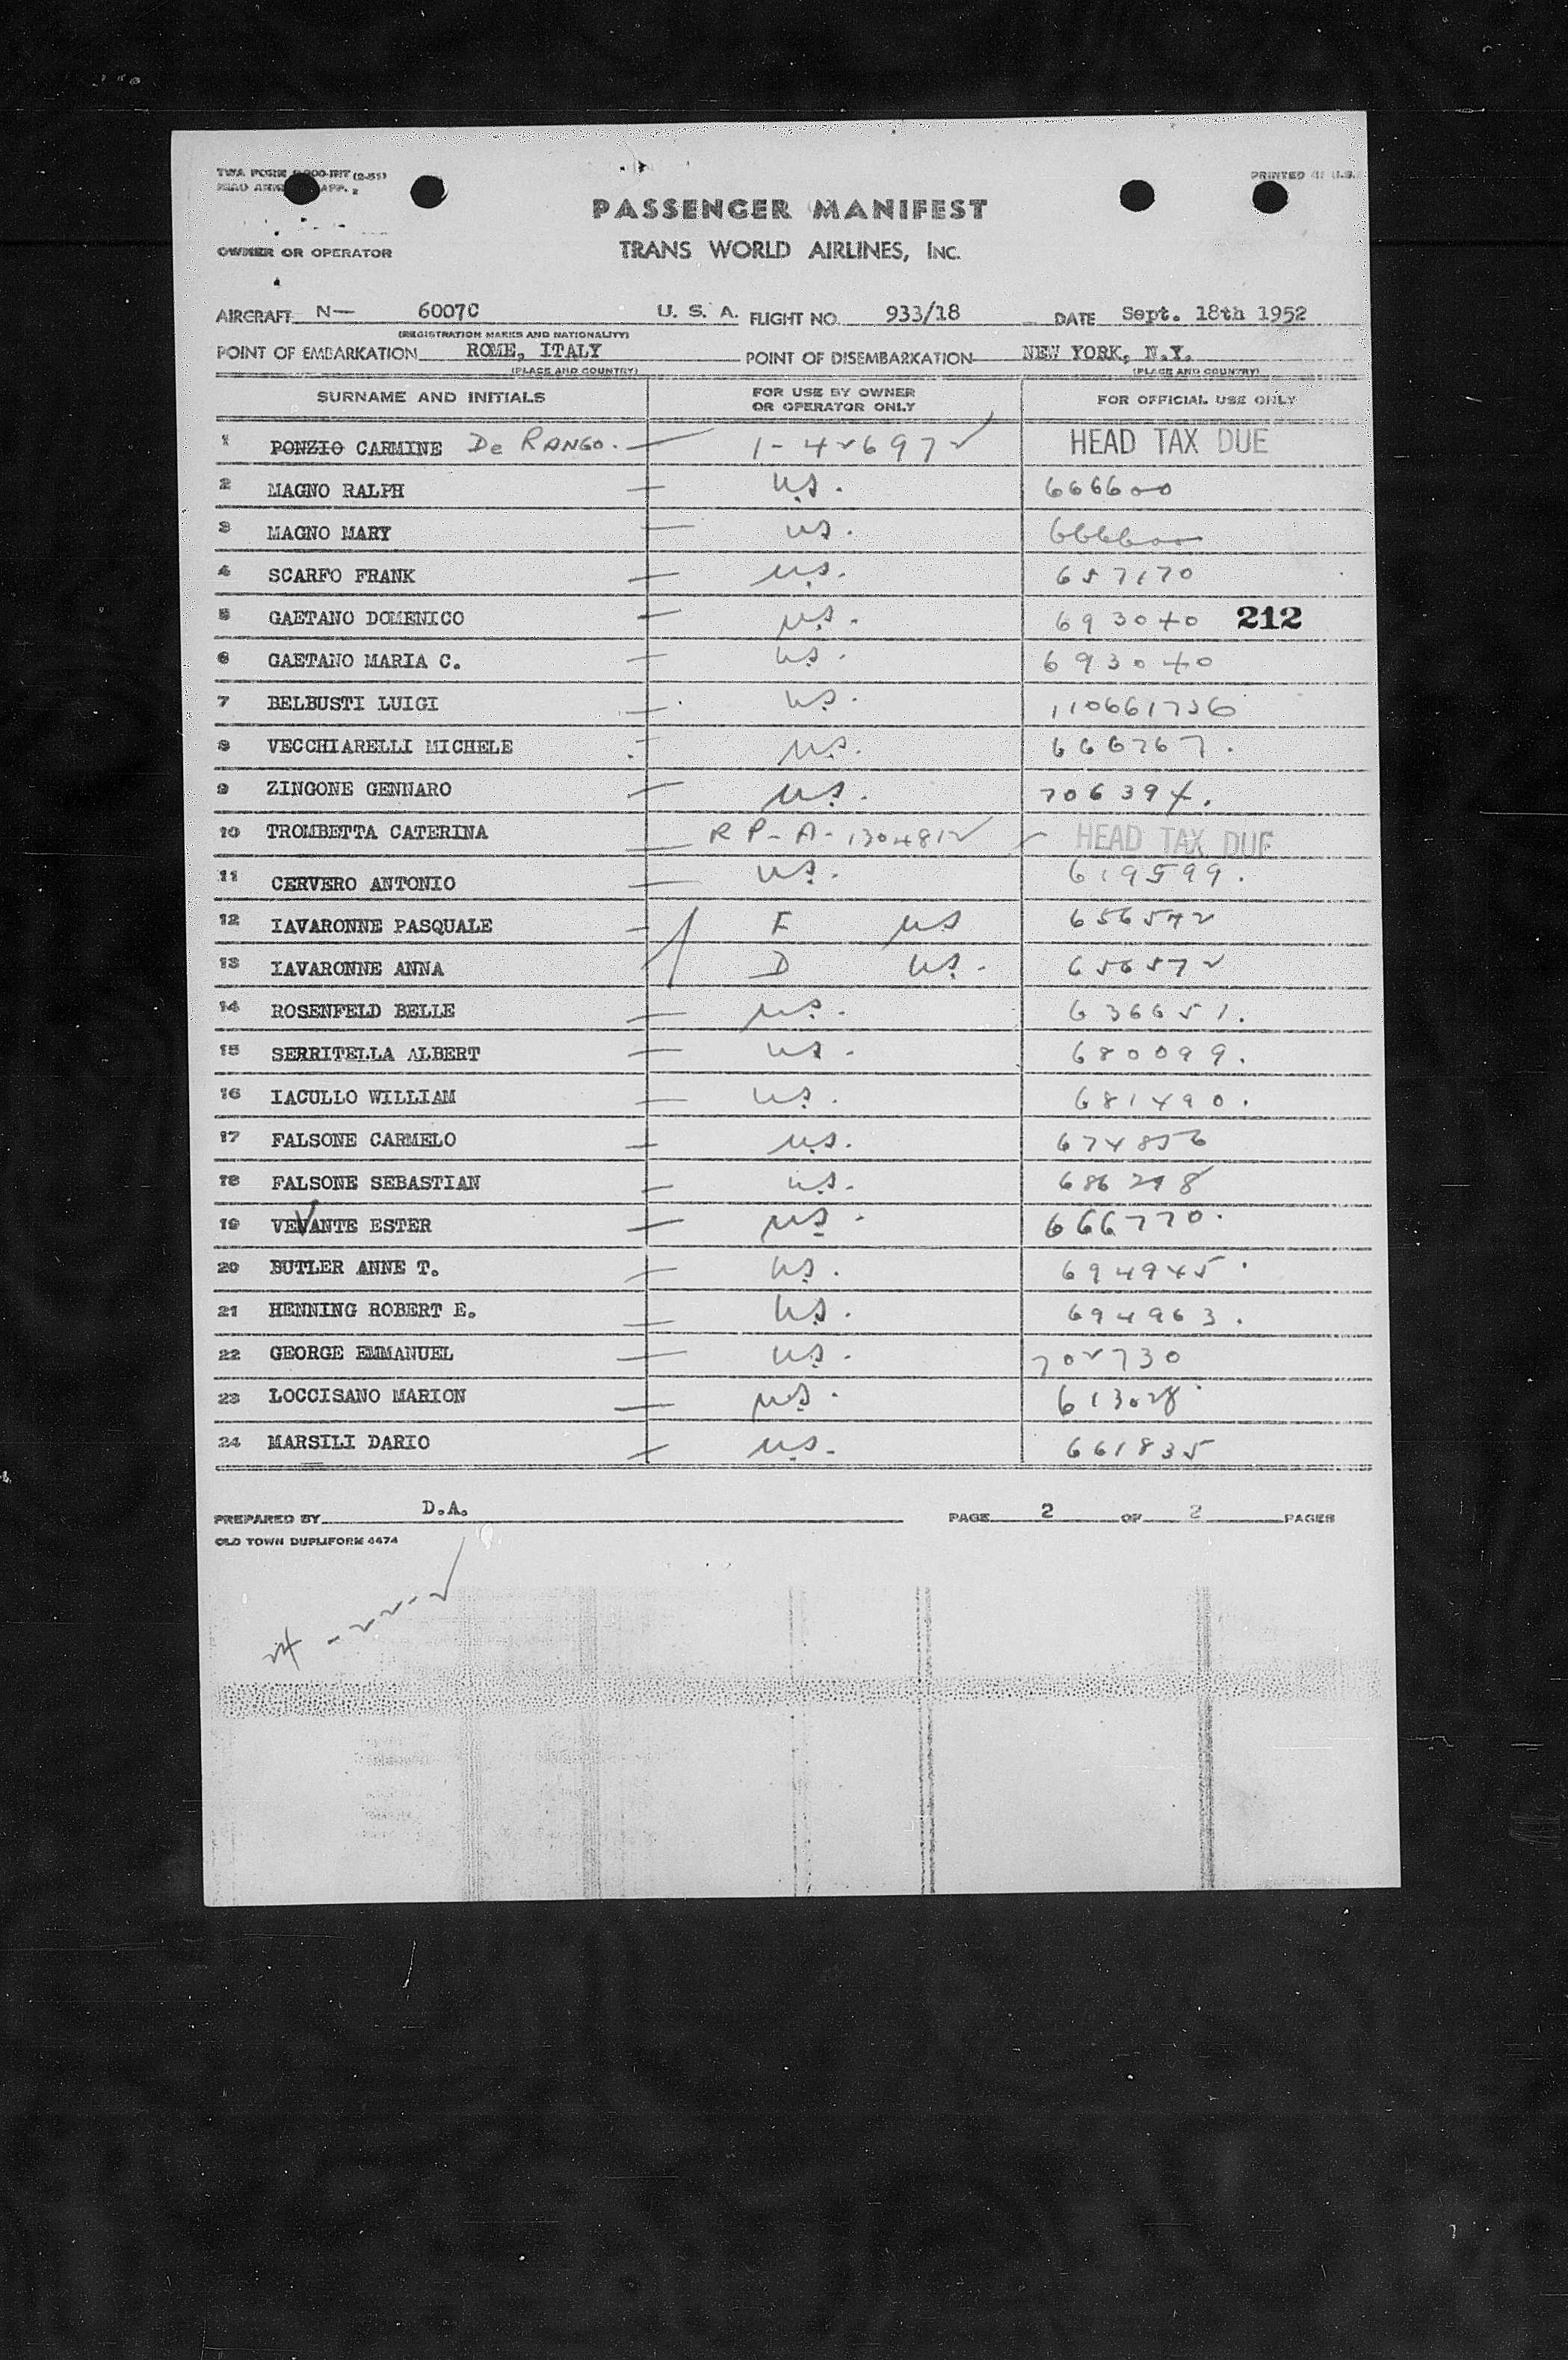 TWA FORM (2-51)
PRINTED IN U.S.
APP. 2
PASSENGER MANIFEST
OWNER OR OPERATOR
TRANS WORLD AIRLINES, INC.
AIRCRAFT N— 6007C U. S. A. FLIGHT NO. 933/18 DATE Sept. 18th 1952
(REGISTRATION MARKS AND NATIONALITY)
POINT OF EMBARKATION ROME, ITALY POINT OF DISEMBARKATION NEW YORK, N.Y.
(PLACE AND COUNTRY) (PLACE AND COUNTRY)
SURNAME AND INITIALS FOR USE BY OWNER OR OPERATOR ONLY FOR OFFICIAL USE ONLY
1 PONZIO CARMINE De RANGO. — 1-426972 HEAD TAX DUE
2 MAGNO RALPH — U.S. 666600
3 MAGNO MARY — U.S. 666600
4 SCARFO FRANK — U.S. 657170
5 GAETANO DOMENICO — U.S. 693040 212
6 GAETANO MARIA C. — U.S. 693040
7 BELBUSTI LUIGI — U.S.
8 VECCHIARELLI MICHELE — U.S. 666767.
9 ZINGONE GENNARO — U.S. 706394.
10 TROMBETTA CATERINA — RP-A-1304812 HEAD TAX DUE
11 CERVERO ANTONIO — U.S. 619599.
12 IAVARONNE PASQUALE — F US 656572
13 IAVARONNE ANNA D U.S. 656572
14 ROSENFELD BELLE — U.S. 636651.
15 SERRITELLA ALBERT — US. 680099.
16 IACULLO WILLIAM — U.S. 681490.
17 FALSONE CARMELO — U.S. 674856
18 FALSONE SEBASTIAN — U.S.
19 VEVANTE ESTER — US. 666770.
20 BUTLER ANNE T. — U.S. 694945.
21 HENNING ROBERT E. — U.S. 694963.
22 GEORGE EMMANUEL — U.S. 702730
23 LOCCISANO MARION — U.S. 613028.
24 MARSILI DARIO — U.S. 661835
PREPARED BY D.A. PAGE 2 OF 2 PAGES
OLD TOWN DUPLIFORM 4474